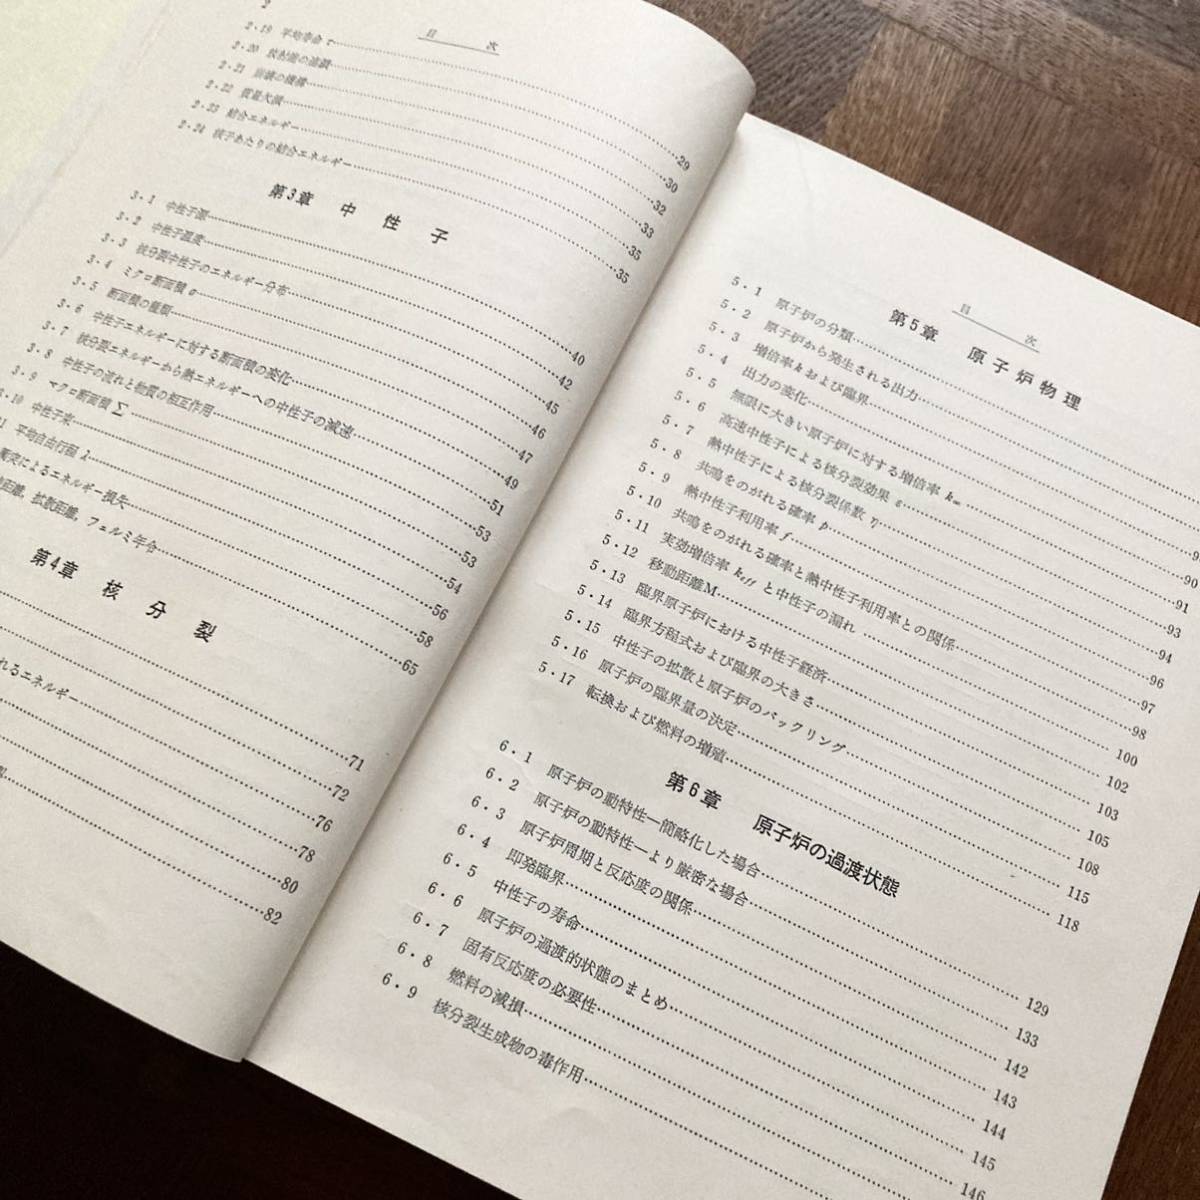 2
目次
2・19 平均寿命 τ 29
2・20 放射能の 30
2・21 崩壊の機構 32
2・22 質量欠損 33
2・23 結合エネルギー 35
2・24 核子あたりの結合エネルギー 35
第3章 中性子
3・1 中性子源 40
3・2 中性子温度 42
3・3 核分裂中性子のエネルギー分布 45
3・4 ミクロ断面積 σ 46
3・5 断面積の種類 47
3・6 中性子エネルギーに対する断面積の変化 49
3・7 核分裂エネルギーから熱エネルギーへの中性子の減速 51
3・8 中性子の流れと物質の相互作用 53
3・9 マクロ断面積 Σ 53
・10 中性子束 54
11 平均自由行程 λ 56
衝突によるエネルギー損失 58
距離,拡散距離,フェルミ年令 65
第4章 核分裂
71
れるエネルギー 72
76
78
80
82
目次
第5章 原子炉物理
5・1 原子炉の分類
5・2 原子炉から発生される出力
5・3 増倍率 k および臨界 9
5・4 出力の変化 90
5・5 無限に大きい原子炉に対する増倍率 k∞ 91
5・6 高速中性子による核分裂効果 ε 93
5・7 熱中性子による核分裂係数 η 94
5・8 共鳴をのがれる確率 p 96
5・9 熱中性子利用率 f 97
5・10 共鳴をのがれる確率と熱中性子利用率との関係 98
5・11 実効増倍率 keff と中性子の漏れ 100
5・12 移動距離M 102
5・13 臨界原子炉における中性子経済 103
5・14 臨界方程式および臨界の大きさ 105
5・15 中性子の拡散と原子炉のバックリング 108
5・16 原子炉の臨界量の決定 115
5・17 転換および燃料の増殖 118
第6章 原子炉の過渡状態
6・1 原子炉の動特性—簡略化した場合 129
6・2 原子炉の動特性—より厳密な場合 133
6・3 原子炉周期と反応度の関係 142
6・4 即発臨界 143
6・5 中性子の寿命 144
6・6 原子炉の過渡的状態のまとめ 145
6・7 固有反応度の必要性 146
6・8 燃料の減損
6・9 核分裂生成物の毒作用